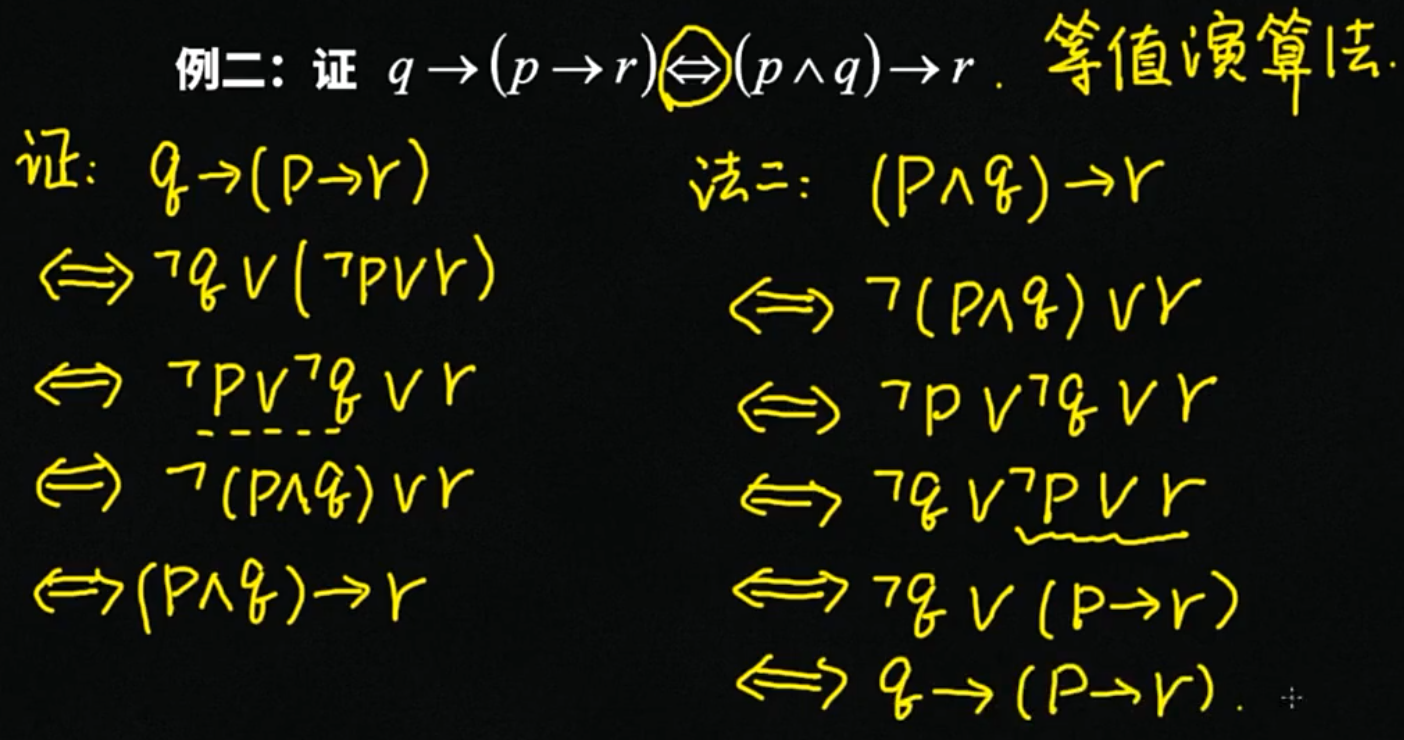 例二：证 q→(p→r)⇔(p∧q)→r. 等值演算法.
证: q→(p→r)
⇔ ¬q∨(¬p∨r)
⇔ ¬p∨¬q∨r
⇔ ¬(p∧q)∨r
⇔(p∧q)→r
法二: (p∧q)→r
⇔ ¬(p∧q)∨r
⇔ ¬p∨¬q∨r
⇔ ¬q∨¬p∨r
⇔ ¬q∨(p→r)
⇔ q→(p→r).